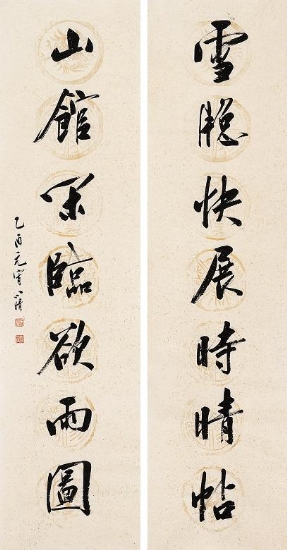 雪牕快展時晴帖
山館閑臨欲雨圖
乙酉元宵